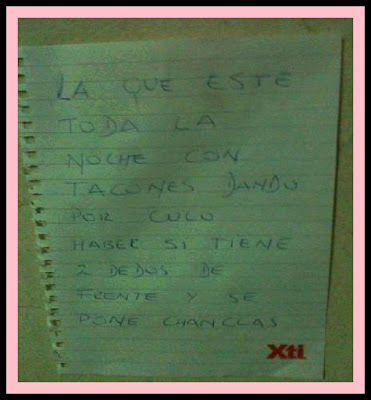 LA QUE ESTE
TODA LA
NOCHE CON
TACONES DANDO
POR CULO
HABER SI TIENE
2 DEDOS DE
FRENTE Y SE
PONE CHANCLAS
Xti